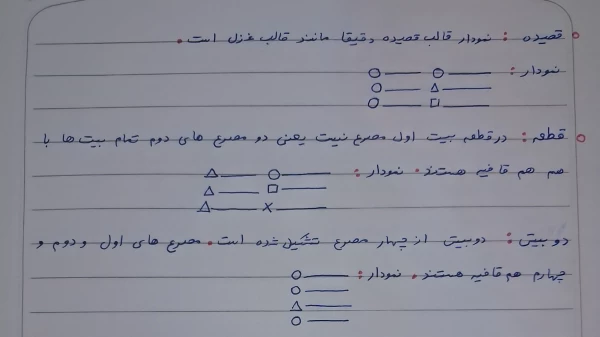 قصیده : نمودار قالب قصیده دقیقا مانند قالب غزل است.
نمودار :
قطعه : در قطعه بیت اول مصرع نیست یعنی دو مصرع های دوم تمام بیت ها با
هم هم قافیه هستند. نمودار :
دو بیتی : دوبیتی از چهار مصرع تشکیل شده است. مصرع های اول و دوم و
چهارم هم قافیه هستند. نمودار :